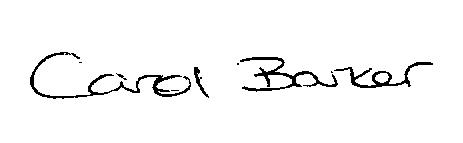 Carol Barker